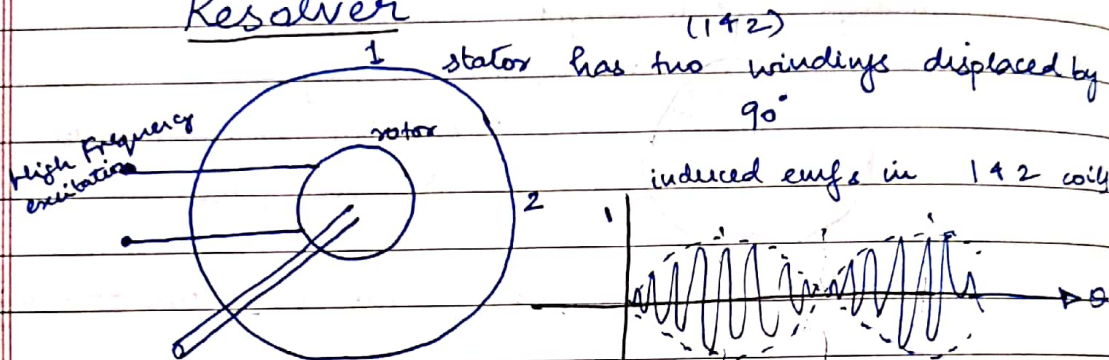 Resolver
(1 & 2)
1 stator has two windings displaced by
90°
High Frequency
excitation
rotor
induced emfs in 1 & 2 coils
2
1
θ